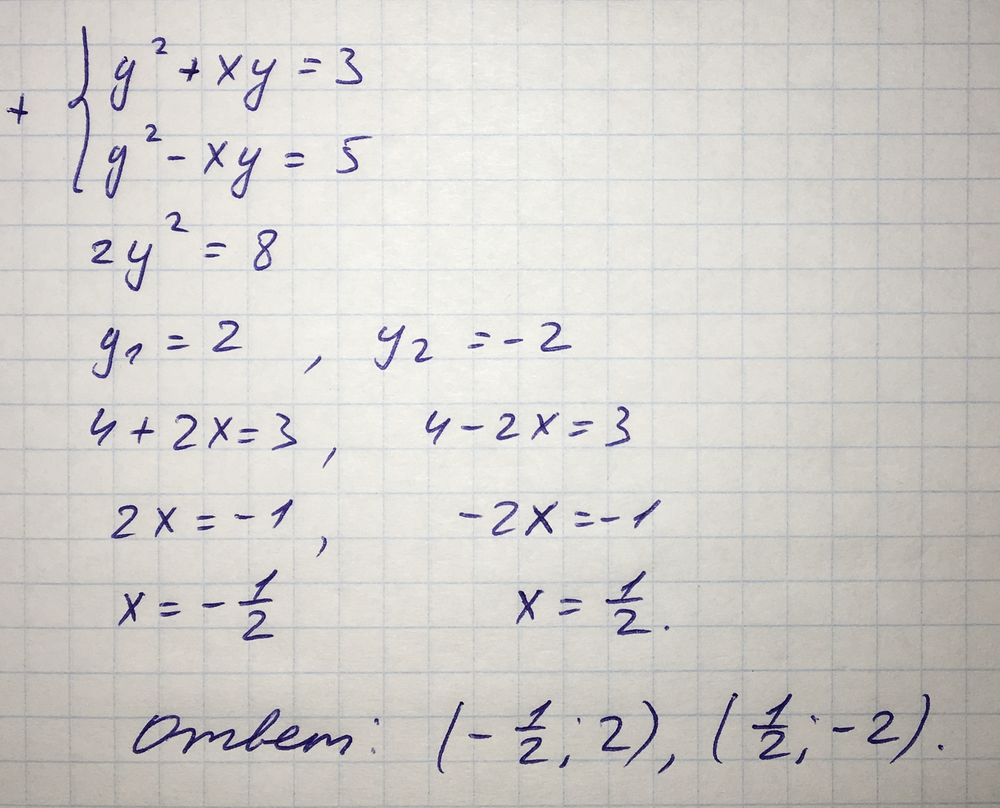 + { y² + xy = 3
y² - xy = 5
2y² = 8
y₁ = 2 , y₂ = -2
4 + 2x = 3 , 4 - 2x = 3
2x = -1 , -2x = -1
x = -1/2 x = 1/2.
Ответ: (-1/2; 2), (1/2; -2).